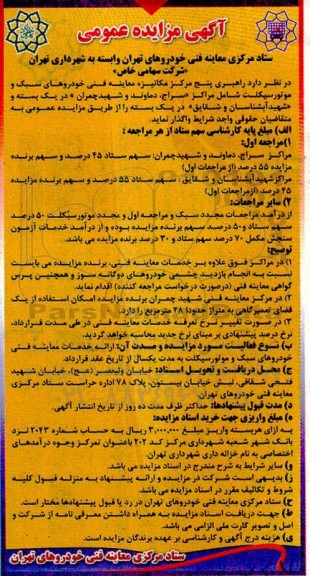 آگهی مزایده عمومی
ستاد مرکزی معاینه فنی خودروهای تهران وابسته به شهرداری تهران
«شرکت سهامی خاص»
در نظر دارد راهبری پنج مرکز مکانیزه معاینه فنی خودروهای سبک و
موتورسیکلت شامل مراکز «سراج، دماوند و شهیدچمران» در یک بسته و
«شهیدآبشناسان و شقایق» در یک بسته را از طریق مزایده عمومی به
متقاضیان حقوقی واجد شرایط واگذار نماید.
الف) مبلغ پایه کارشناسی سهم ستاد از هر مراجعه :
۱) مراجعه اول:
مراکز سراج، دماوند و شهیدچمران: سهم ستاد ۴۵ درصد و سهم برنده
مزایده ۵۵ درصد (از مراجعات اول)
مراکز شهیدآبشناسان و شقایق : سهم ستاد ۵۵ درصد و سهم برنده مزایده
۴۵ درصد (از مراجعات اول)
۲) سایر مراجعات:
از درآمد مراجعات مجدد سبک و مراجعه اول و مجدد موتورسیکلت ۵۰ درصد
سهم ستاد و ۵۰ درصد سهم برنده مزایده بوده و از درآمد خدمات آزمون
سنجش مکمل ۷۰ درصد سهم ستاد و ۳۰ درصد برنده مزایده می باشد.
توضیح:
۱) در مراکز فوق علاوه بر خدمات معاینه فنی، برنده مزایده می بایست
نسبت به انجام بازدید چشمی خودروهای دوگانه سوز و همچنین پرس
گواهی معاینه فنی (درصورت درخواست مراجعه کننده) اقدام نماید.
۲) در مرکز معاینه فنی شهید چمران برنده مزایده امکان استفاده از یک
فضای تعمیرگاهی به متراژ حدودا ۲۸ مترمربع را دارد.
۳) در صورت تغییر نرخ تعرفه خدمات معاینه فنی در طی مدت قرارداد،
نرخ درصد پیشنهادی بر مبنای نرخ جدید محاسبه خواهد گردید.
ب) نوع فعالیت مورد مزایده و مدت آن: ارائه خدمات معاینه فنی
خودروهای سبک و موتورسیکلت به مدت یکسال از تاریخ عقد قرارداد.
ج) محل دریافت و تحویل اسناد: خیابان ولیعصر (عج)، خیابان شهید
فتحی شقاقی، نبش خیابان بیستون، پلاک ۷۸ اداره حراست ستاد مرکزی
معاینه فنی خودروهای تهران
د) مدت قبول پیشنهادها: حداکثر ظرف مدت ده روز از تاریخ انتشار آگهی.
ه) مبلغ واریزی جهت خرید اسناد مزایده:
به ازای هربسته واریز مبلغ ۳٫۰۰۰٫۰۰۰ ریال به حساب شماره ۲۰۴۳ نزد
بانک شهر شعبه شهرداری مرکز کد ۲۰۲ باعنوان تمرکز وجوه درآمدهای
اختصاصی به نام خزانه داری شهرداری تهران.
و) سایر شرایط به شرح مندرج در اسناد مزایده می باشد.
ز) بدیهی است شرکت در مزایده و ارائه پیشنهاد به منزله قبول کلیه
شروط و تکالیف مقرر در اسناد مزایده می باشد.
ح) ستاد مرکزی معاینه فنی خودروهای تهران در رد یا قبول پیشنهادها مختار است.
ط) جهت دریافت اسناد مزایده به همراه داشتن معرفی نامه از شرکت و
اصل و تصویر کارت ملی الزامی می باشد.
ی) هزینه درج آگهی و کارشناسی بر عهده برندگان مزایده است.
ستاد مرکزی معاینه فنی خودروهای تهران